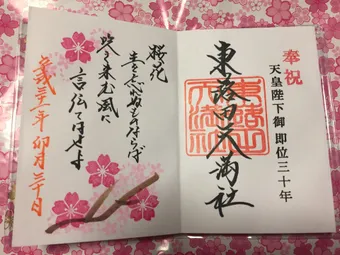 奉祝
天皇陛下御即位三十年
東蕗田天満社
東蕗田
天満社
桜の花
主を忘れぬものならば
吹き来む風に
言伝てはせよ
平成三十一年 卯月三十日